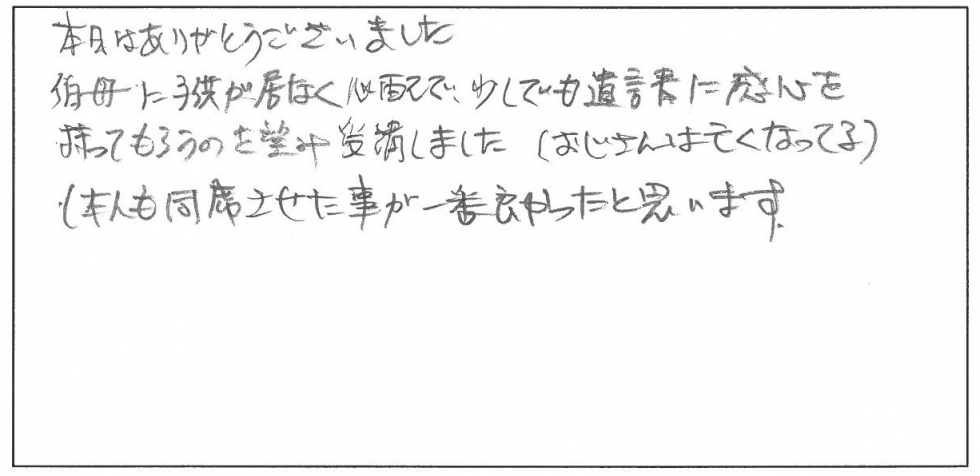 本日はありがとうございました
伯母に子供が居なく心配で、少しでも遺言書に感心を
持ってもらうのを望み受講しました (おじさんは亡くなってる)
(本人も同席させた事が一番良かったと思います。